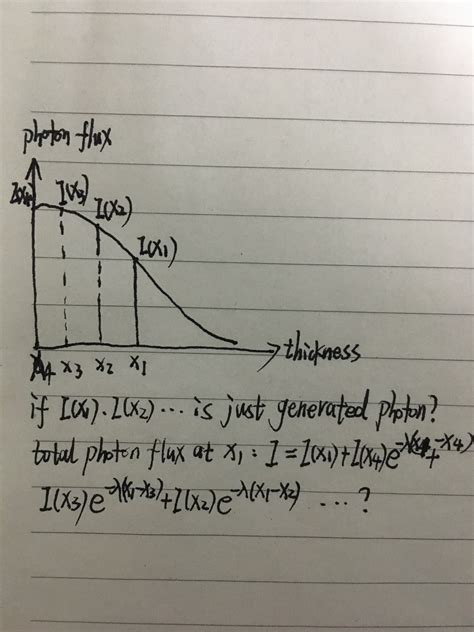 photon flux
I(x4) I(x3) I(x2) I(x1)
x4 x3 x2 x1 thickness
if I(x1). I(x2) ... is just generated photon?
total photon flux at x1 : I = I(x1) + I(x4)e^-λ(x1-x4) +
I(x3)e^-λ(x1-x3) + I(x2)e^-λ(x1-x2) ... ?